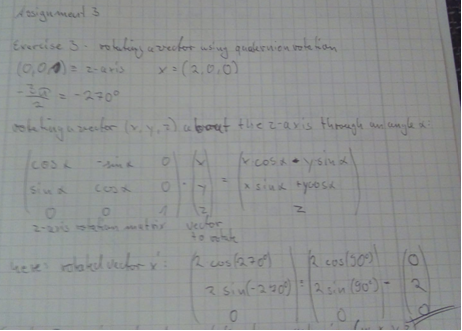 Assignment 3
Exercise 3 - rotating a vector using quaternion rotation
(0,0,1) = z-axis x = (2,0,0)
-3π/2 = -270°
rotating a vector (x,y,z) about the z-axis through an angle α
(cosα -sinα 0) (x) (x cosα - y sinα)
(sinα cosα 0) · (y) = (x sinα + y cosα)
(0 0 1) (z) (z)
z-axis rotation matrix vector to rotate
here: rotated vector x': (2 cos(270°)) (2 cos(90°)) (0)
(2 sin(-270°)) = (2 sin(90°)) = (2)
(0) (0) (0)